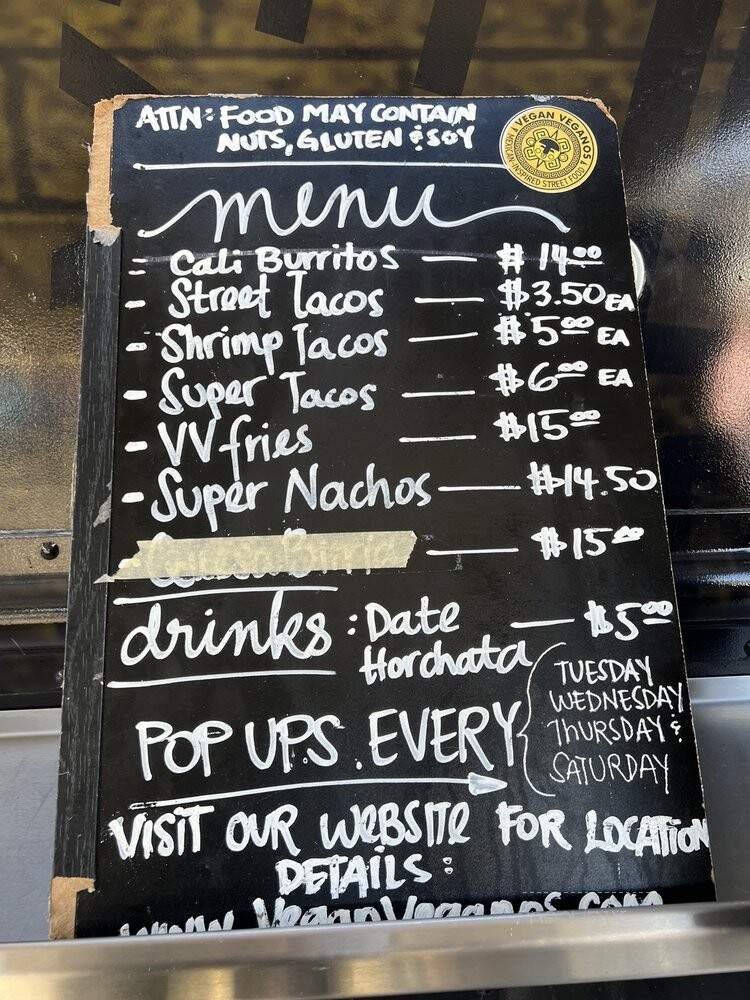 ATTN: FOOD MAY CONTAIN
NUTS, GLUTEN & SOY
VEGAN VEGANOS
MEXICAN INSPIRED STREET FOOD
menu
- Cali Burritos — $14.00
- Street Tacos — $3.50 EA
- Shrimp Tacos — $5.00 EA
- Super Tacos — $6.00 EA
- VV fries — $15.00
- Super Nachos — $14.50
— $15.00
drinks: Date — $5.00
Horchata
POP UPS. EVERY
TUESDAY
WEDNESDAY
THURSDAY &
SATURDAY
VISIT OUR WEBSITE FOR LOCATION
DETAILS:
www.VeganVeganos.com